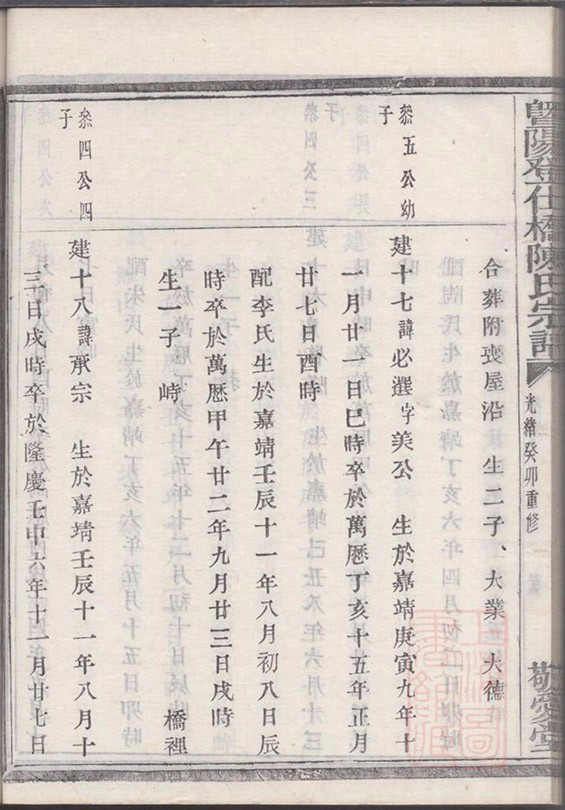 暨陽登仕橋陳氏宗譜
光緒癸卯重修
敬愛堂
合葬附喪屋沿 生二子、大業 大德
叅五公幼子
建十七諱必選字美公 生於嘉靖庚寅九年十
一月廿一日巳時卒於萬厯丁亥十五年正月
廿七日酉時
配李氏生於嘉靖壬辰十一年八月初八日辰
時卒於萬厯甲午廿二年九月廿三日戌時
生一子 峙 橋裡
叅四公四子
建十八諱承宗 生於嘉靖壬辰十一年八月十
三日戌時卒於隆慶壬申六年十一月廿七日